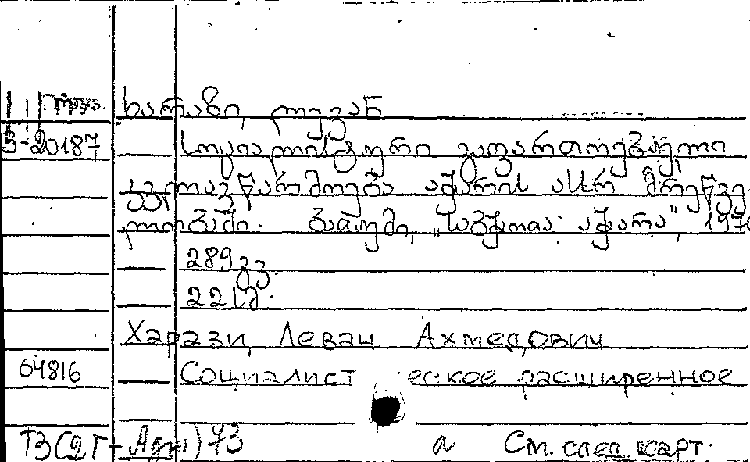 груз. ხარაზი, ლევან
3-20187 სოციალისტური გაფართოებული
კვლავწარმოება აჭარის ასსრ მრეწვე-
ლობაში. ბათუმი, "საბჭოთა აჭარა",
289 გვ.
22 სმ.
Харази, Леван Ахмедович
64816 Социалистическое расширенное
73 а См. след. карт.